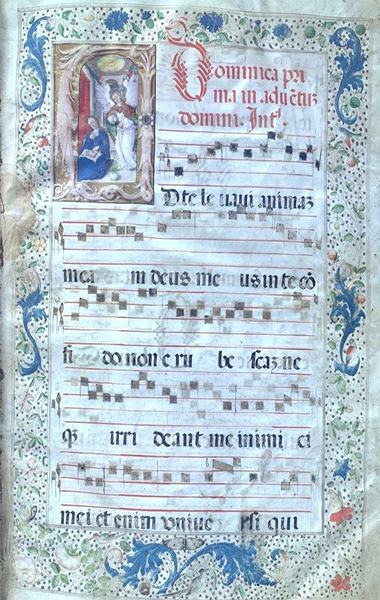 Dominica pri
ma in aduẽtus
domini. Intꝰ.
D te le uaui animaz
mea m deus me us in te cõ
fi do non e ru be scaz ne
qꝫ irri deant me inimi ci
mei et enim vniue rsi qui